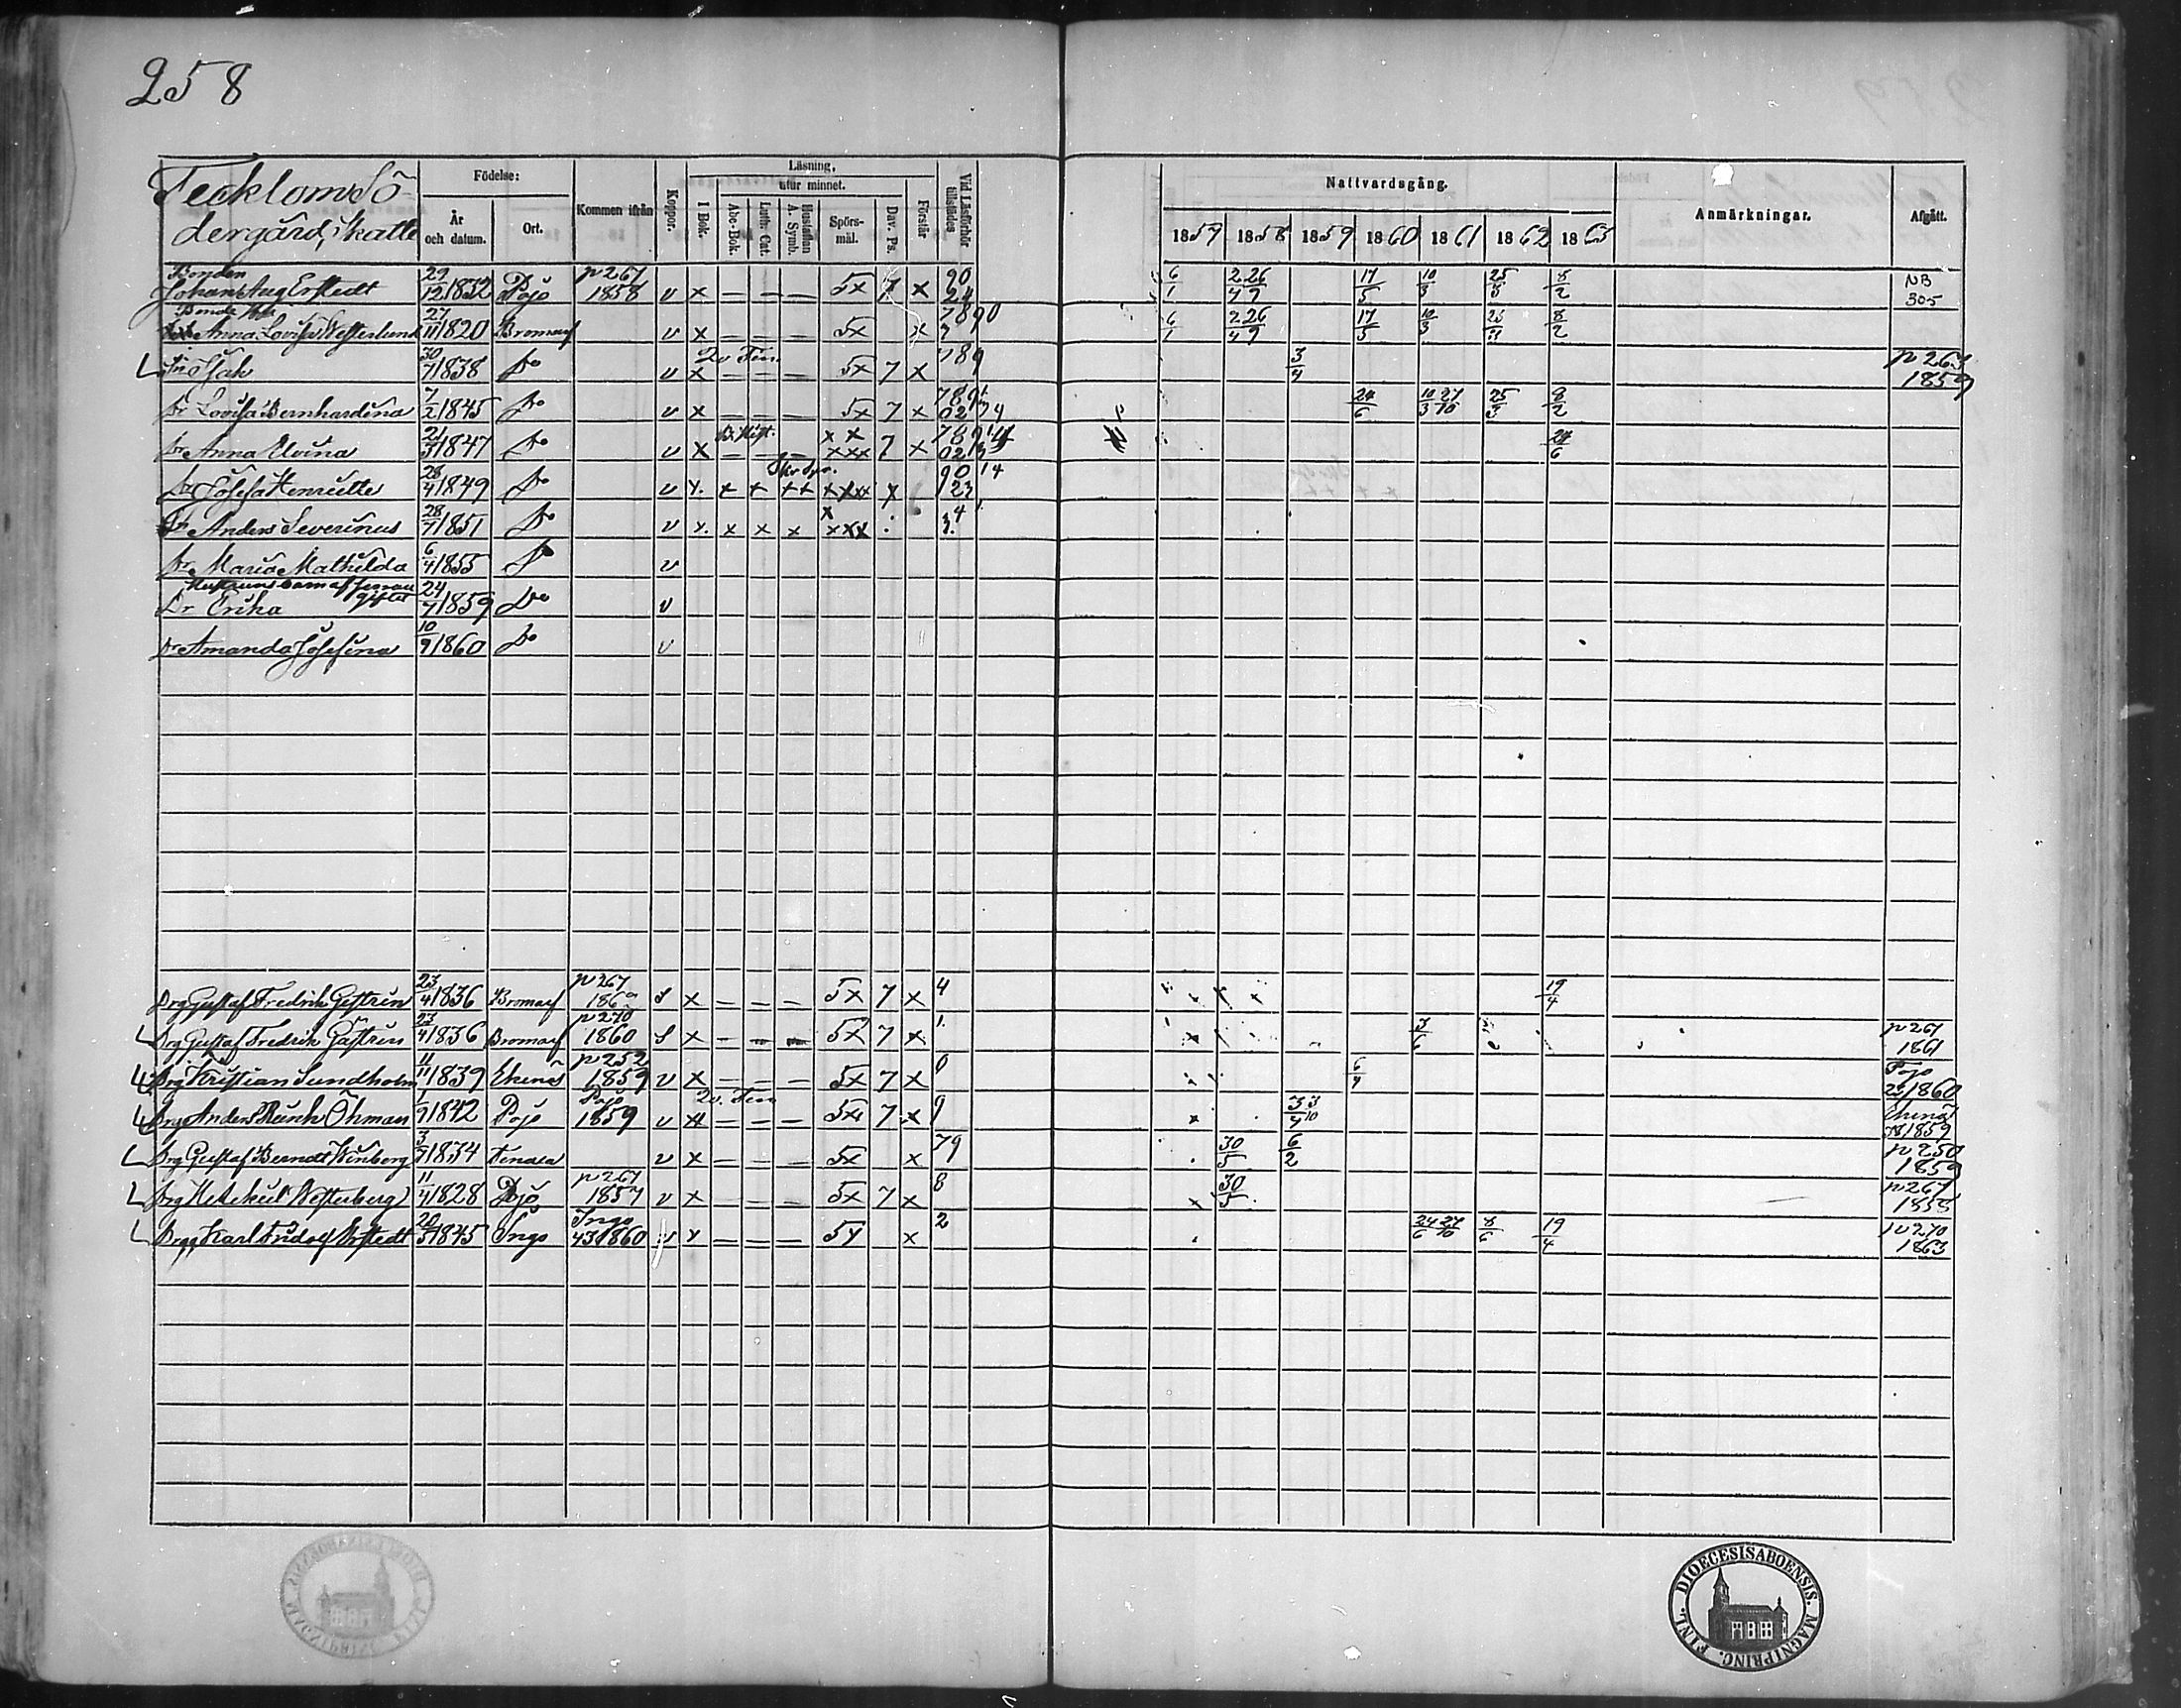 258
Tecklom Sö-
dergård, Skatte
Födelse:
År och datum.
Ort.
Kommen ifrån
Koppor.
Läsning,
utur minnet.
I Bok.
Abc-Bok.
Luth. Cat.
Hustaflan A. Symb.
Spörs-mål.
Dav. Ps.
Förstår
Vid Läsförhör tillstädes
Nattvardsgång.
1857 1858 1859 1860 1861 1862 1863
Anmärkningar.
Afgått.
Bonden p 267
Johan Aug Erstedt 29/12 1832 Pojo 1858 v x – – – 5x 7 x 90 24 6/1 2/4 26/9 17/5 10/3 25/3 8/2 NB 305
Anna Lovisa Westerlund 27/11 1820 Bromarf v x – – – 5x x 7890 3 6/1 2/4 26/9 17/5 10/3 25/3 8/2
Isak 30/7 1838 Do v x – – – 5x 7 x 789 3/4 p 263 1859
Dr Lovisa Bernhardina 7/2 1845 Do v x – – – 5x 7 x 24/6 10/3 27/10 25/3 8/2
Dr Anna Alvina 21/3 1847 Do v x – – – 7 x 24/6
Dr Josefa Henriette 28/4 1849 Do v x. x x xx xxxx x 90 14 23
Anders Severinus 28/7 1851 Do v x. x x x xxx
Dr Maria Mathilda 6/4 1855 Do v
Hustruns barn af senare giftet
Dr Erika 24/7 1859 Do v
Dr Amanda Josefina 10/9 1860 Do v
Drg Gustaf Fredrik Gestrin 23/4 1836 Bromarf p 267 S x – – – 5x 7 x 4 19/4
Drg Gustaf Fredrik Gästrin 23/4 1836 Bromarf p 270 1860 S x – – – 5x 7 x 1. 3/6 p 267 1861
Drg Kristian Sundholm 11/11 1839 Ekenäs p 252 1859 v x – – – 5x 7 x 0 Pojo 1860
Drg Anders Öhman 1/9 1842 Pojo Pojo 1859 v x – – – 5x 7 x 9 3/4 3/10 Ekenäs 1859
Drg Gustaf Berndt Winberg 1834 Tenala v x – – – 5x x 79 30/5 6/2 p 250 1859
Drg Westerberg 11/4 1828 Pojo p 267 1857 v x – – – 5x 7 x 8 30/5 p 267 1858
Drg Karl Fridolf Erstedt 1845 Ingo Ingo 1860 v x – – – 5x x 2 24/6 27/10 8/6 19/4 p 270 1863
FINL. DIOECESIS ABOENSIS. MAGNI PRINC.